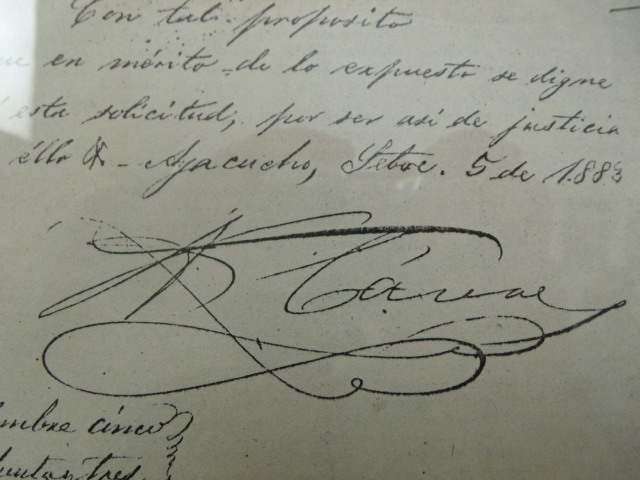 Con tal proposito
que en mérito de lo expuesto se digne
esta solicitud, por ser así de justicia
ello &.- Ayacucho, Setbe. 5 de 1.883
mbre cinco